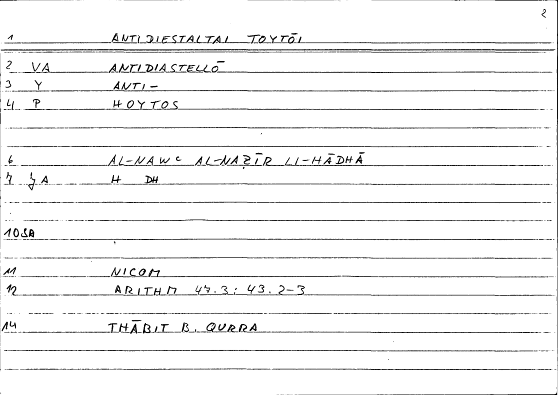 2
1 ANTIDIESTALTAI TOYTŌI
2 VA ANTIDIASTELLŌ
3 Y ANTI-
4 P HOYTOS
6 AL-NAWᶜ AL-NAẒĪR LI-HĀDHĀ
7 A H DH
10 SA
11 NICOM
12 ARITHM 47.3: 43.2-3
14 THĀBIT B. QURRA